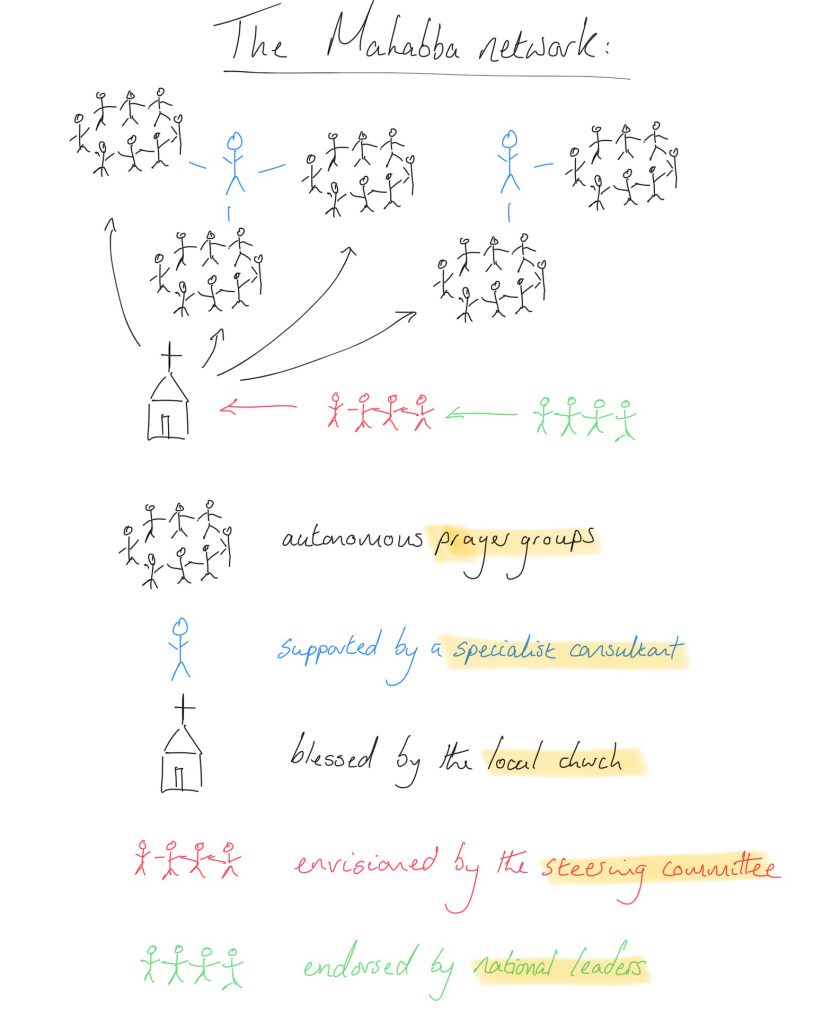 The Mahabba network:
autonomous prayer groups
supported by a specialist consultant
blessed by the local church
envisioned by the steering committee
endorsed by national leaders